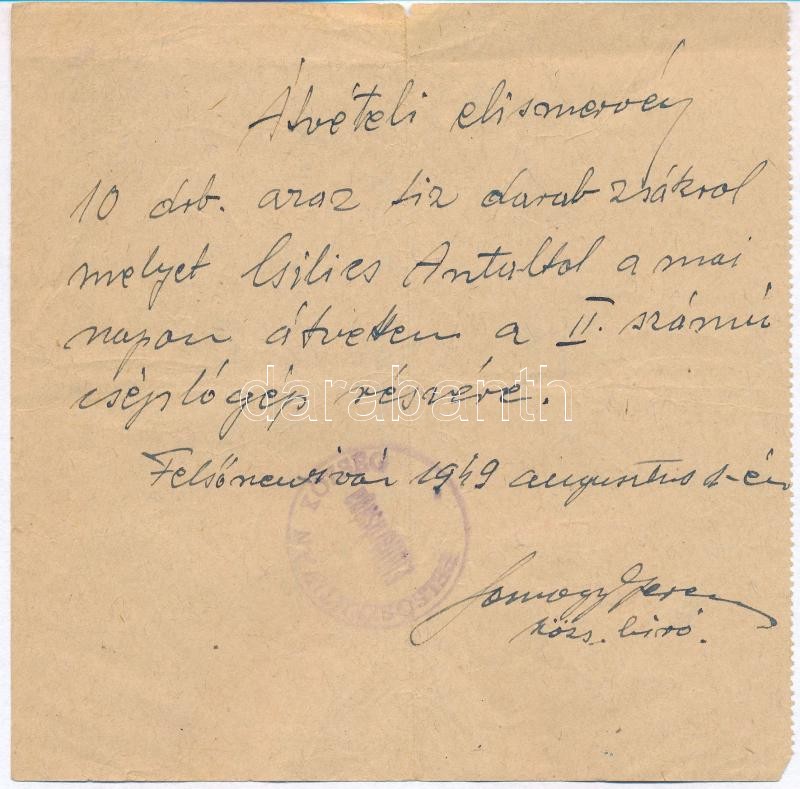 Átvételi elismervény
10 drb. azaz tiz darab zsákrol
melyet Csilics Antaltol a mai
napon átvettem a II. számú
cséplőgép részére.
darabanth
1949 augusztus 1-én
KÖZSÉG
Somogyi Ferenc
közs. biró.